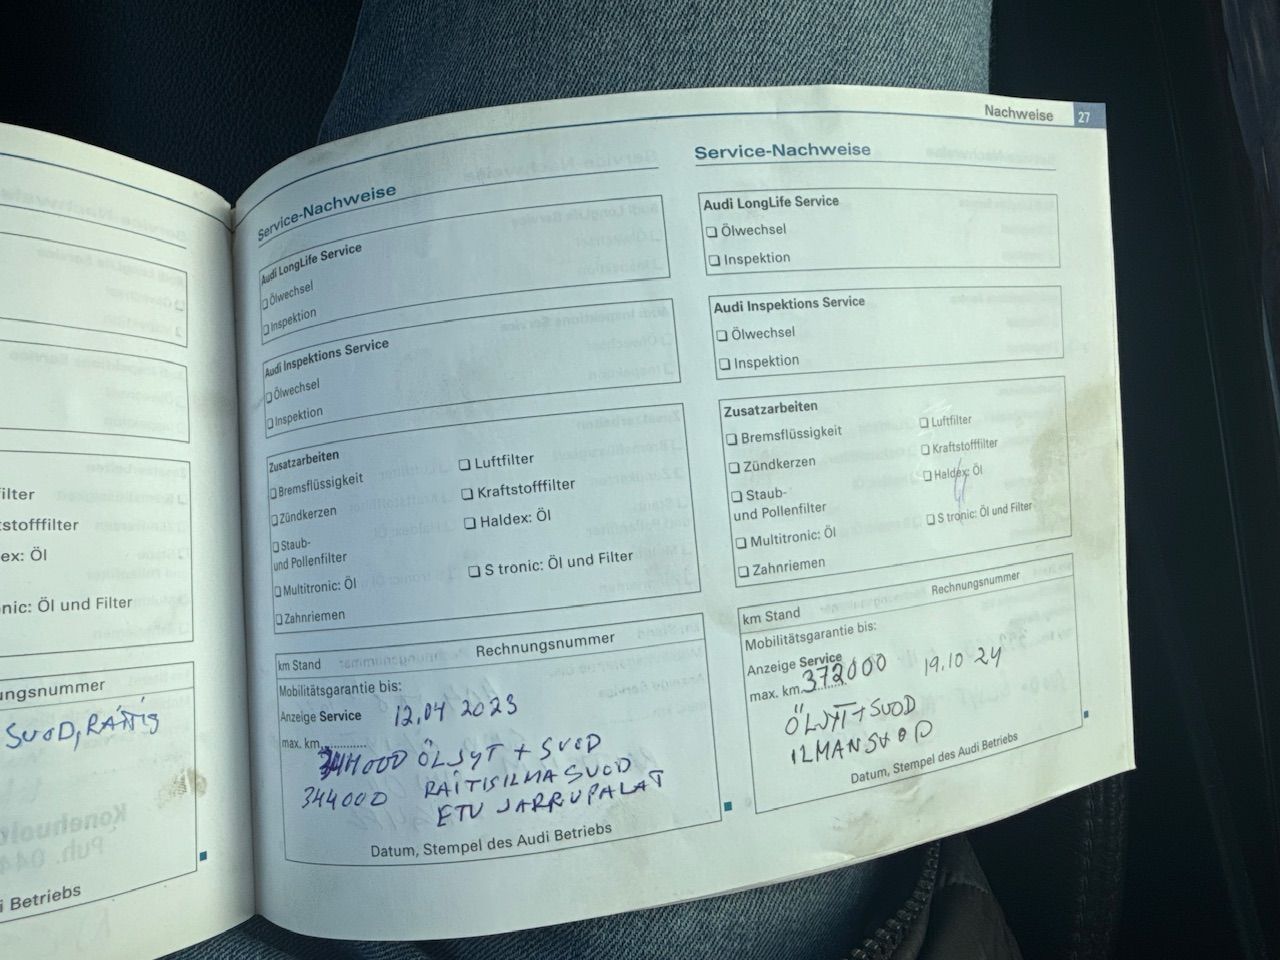 Nachweise 27
ilter
stofffilter
ex: Öl
nic: Öl und Filter
ungsnummer
SUOD, RAITIS
i Betriebs
Service-Nachweise
Audi LongLife Service
Ölwechsel
Inspektion
Audi Inspektions Service
Ölwechsel
Inspektion
Zusatzarbeiten
Bremsflüssigkeit
Zündkerzen
Staub-
und Pollenfilter
Multitronic: Öl
Zahnriemen
Luftfilter
Kraftstofffilter
Haldex: Öl
S tronic: Öl und Filter
km Stand Rechnungsnummer
Mobilitätsgarantie bis:
Anzeige Service 12.04 2023
max. km............
344000 ÖLJYT + SUOD
344000 RAITISILMA SUOD
ETU JARRUPALAT
Datum, Stempel des Audi Betriebs
Service-Nachweise
Audi LongLife Service
Ölwechsel
Inspektion
Audi Inspektions Service
Ölwechsel
Inspektion
Zusatzarbeiten
Bremsflüssigkeit
Zündkerzen
Staub-
und Pollenfilter
Multitronic: Öl
Zahnriemen
Luftfilter
Kraftstofffilter
Haldex: Öl
S tronic: Öl und Filter
km Stand Rechnungsnummer
Mobilitätsgarantie bis:
Anzeige Service
max. km 372000 19.10 24
ÖLJYT+SUOD
ILMANSUOD
Datum, Stempel des Audi Betriebs